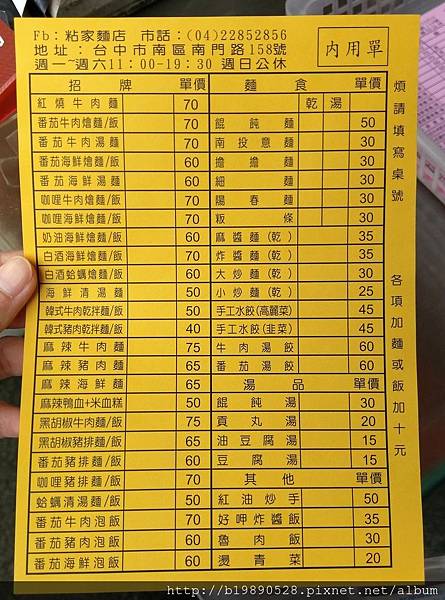 Fb: 粘家麵店 市話:(04)22852856
地址: 台中市南區南門路158號
週一~週六11:00-19:30 週日公休
內用單
招牌 單價
紅燒牛肉麵 70
番茄牛肉燴麵/飯 70
番茄牛肉湯麵 70
番茄海鮮燴麵/飯 60
番茄海鮮湯麵 60
咖哩牛肉燴麵/飯 70
咖哩海鮮燴麵/飯 70
奶油海鮮燴麵/飯 60
白酒海鮮燴麵/飯 70
白酒蛤蠣燴麵/飯 60
海鮮清湯麵 50
韓式牛肉乾拌麵/飯 50
韓式豬肉乾拌麵/飯 40
麻辣牛肉麵 75
麻辣豬肉麵 65
麻辣海鮮麵 65
麻辣鴨血+米血糕 50
黑胡椒牛肉麵/飯 75
黑胡椒豬排麵/飯 65
番茄豬排麵/飯 60
咖哩豬排麵/飯 70
蛤蠣清湯麵/飯 50
番茄牛肉泡飯 70
番茄豬肉泡飯 60
番茄海鮮泡飯 60
麵食 單價
乾 湯
餛飩麵 50
南投意麵 30
擔擔麵 30
細麵 30
陽春麵 30
粄條 30
麻醬麵(乾) 35
炸醬麵(乾) 35
大炒麵(乾) 30
小炒麵(乾) 25
手工水餃(高麗菜) 45
手工水餃(韭菜) 45
牛肉湯餃 60
番茄湯餃 60
湯品 單價
餛飩湯 30
貢丸湯 20
油豆腐湯 15
豆腐湯 15
其他 單價
紅油炒手 50
好呷炸醬飯 35
魯肉飯 30
燙青菜 20
煩請填寫桌號
各項加麵或飯加十元
http://b19890528.pixnet.net/album